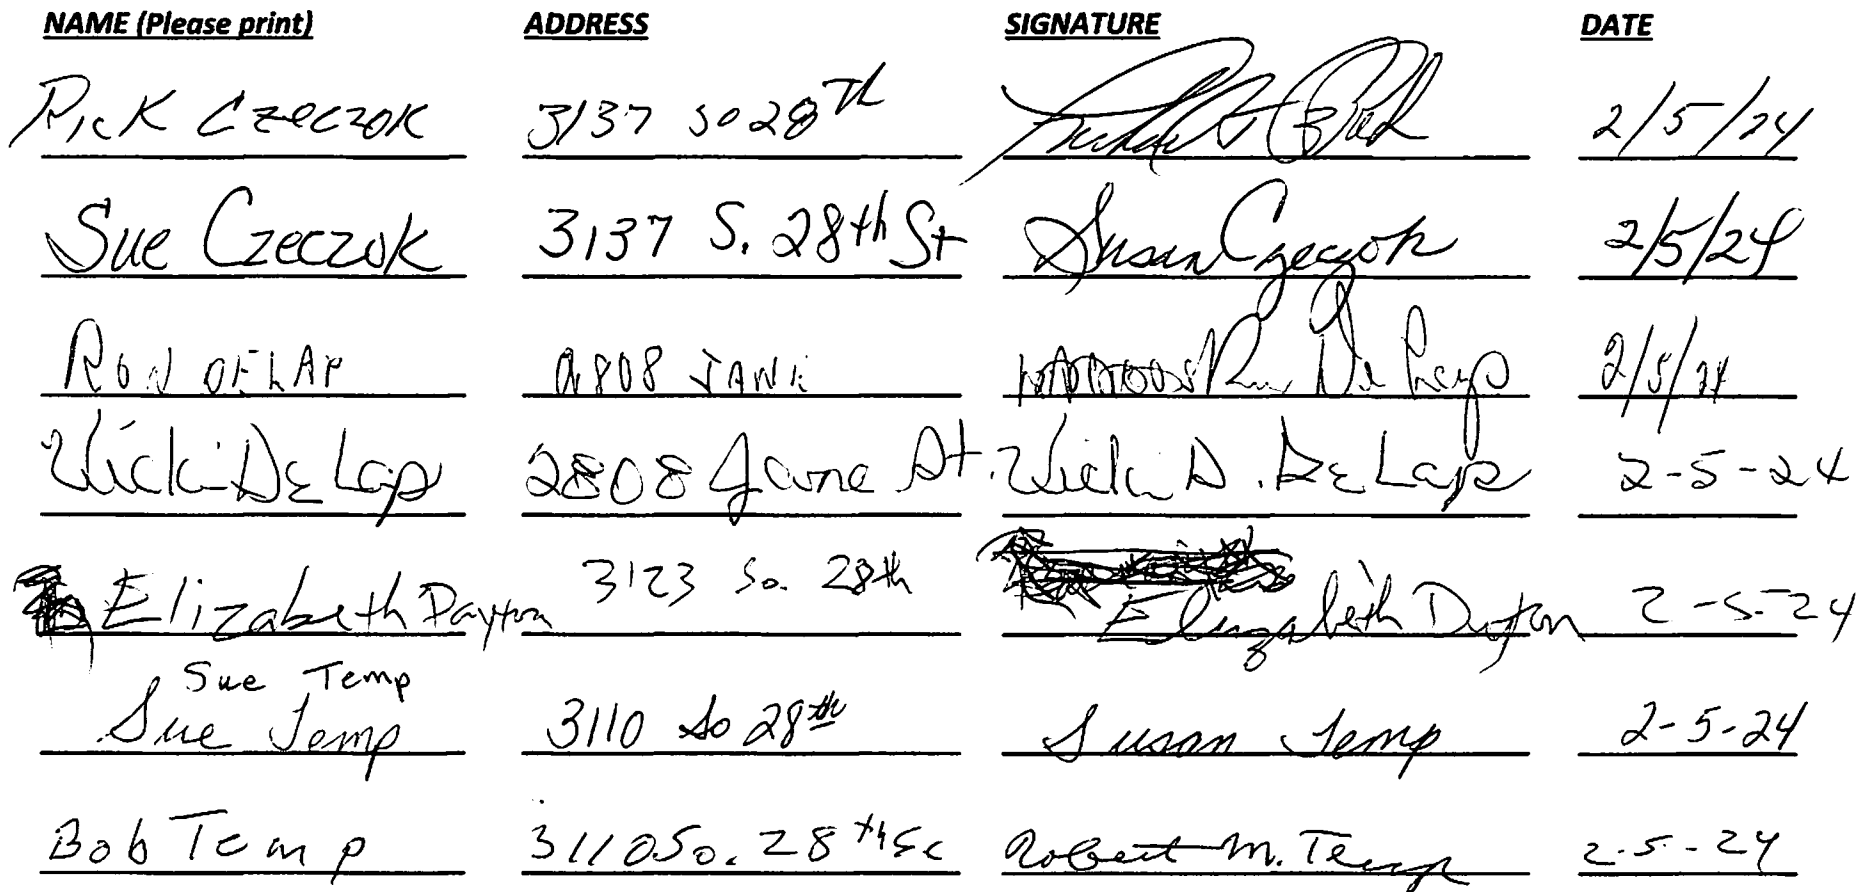 NAME (Please print) ADDRESS SIGNATURE DATE
Rick Czeczok 3137 so 28th 2/5/24
Sue Czeczok 3137 S. 28th St Susan Czeczok 2/5/24
RON DELAP 2808 JANE Ron De Lap 2/5/24
Vicki De Lap 2808 Jane St. Vicki D. De Lap 2-5-24
Elizabeth Dayton 3123 So. 28th Elizabeth Dayton 2-5-24
Sue Temp
Sue Temp 3110 So 28th Susan Temp 2-5-24
Bob Temp 3110 So. 28th Robert M. Temp 2-5-24